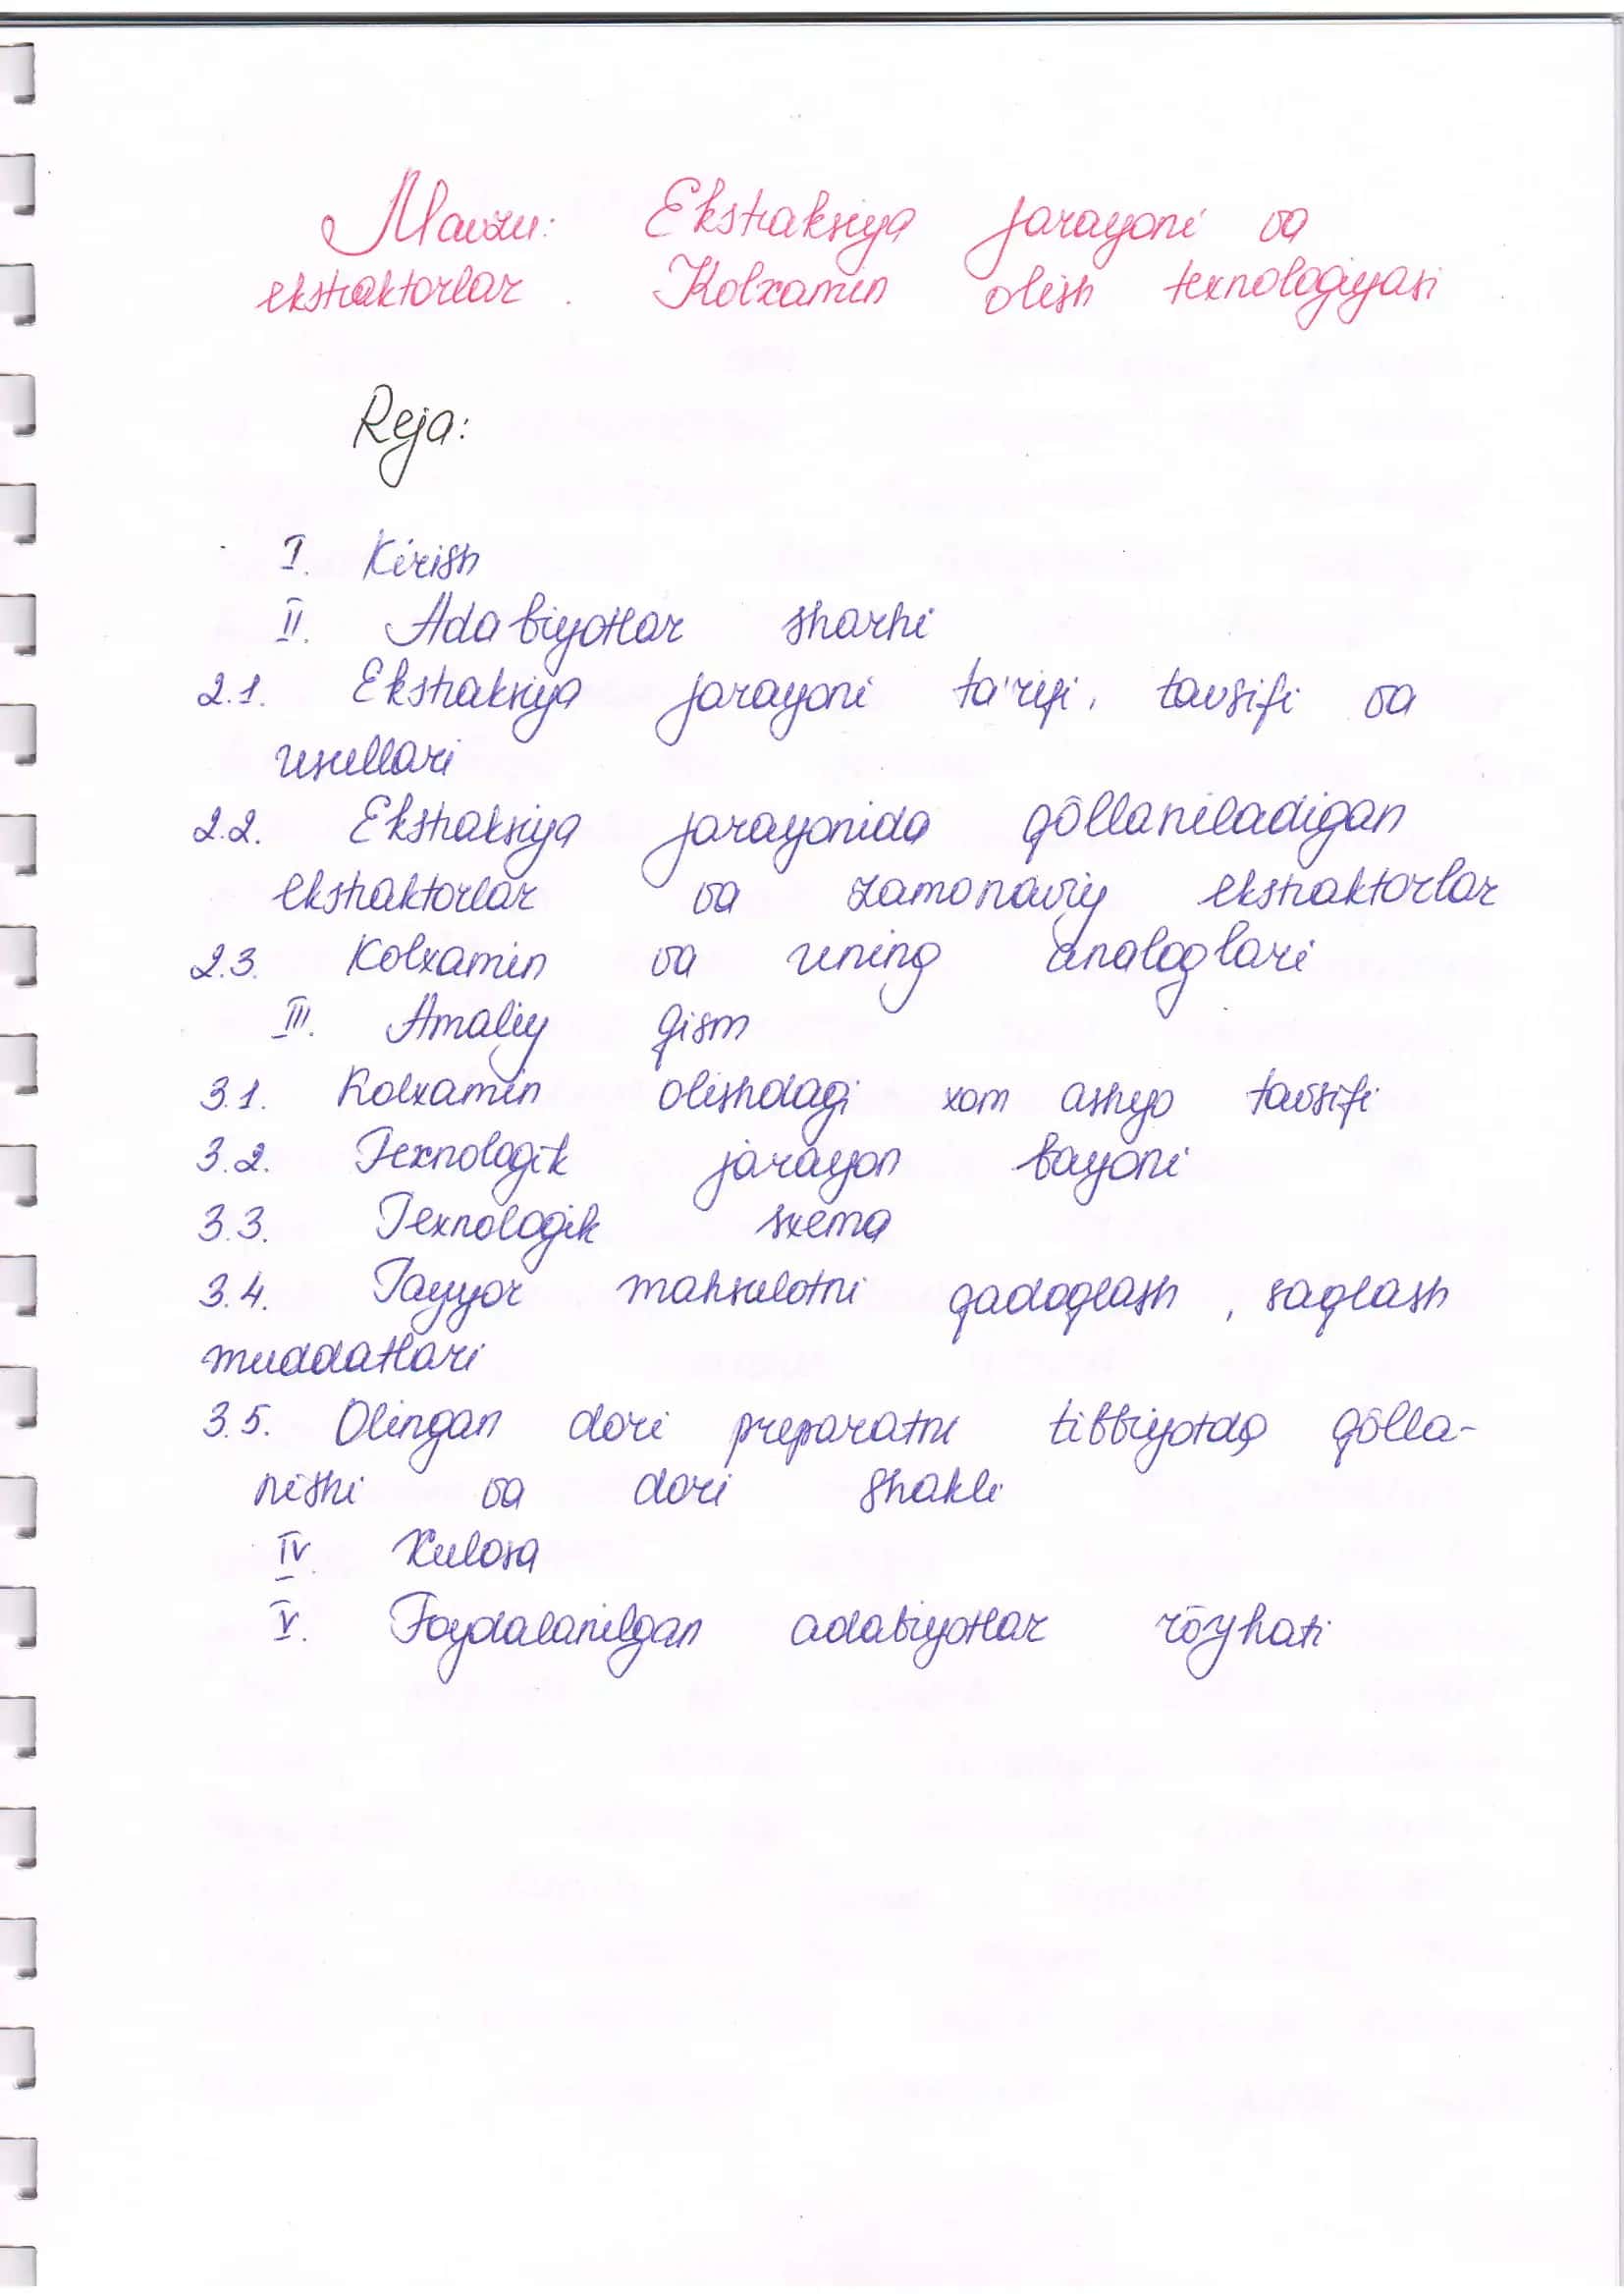 Mavzu: Ekstraksiya jarayoni va
ekstraktorlar. Kolxamin olish texnologiyasi
Reja:
I. Kirish
II. Adabiyotlar sharhi
2.1. Ekstraksiya jarayoni ta'rifi, tavsifi va
usullari
2.2. Ekstraksiya jarayonida qôllaniladigan
ekstraktorlar va zamonaviy ekstraktorlar
2.3. Kolxamin va uning analoglari
III. Amaliy qism
3.1. Kolxamin olishdagi xom ashyo tavsifi
3.2. Texnologik jarayon bayoni
3.3. Texnologik sxema
3.4. Tayyor mahsulotni qadoqlash, saqlash
muddatlari
3.5. Olingan dori preparatni tibbiyotda qôlla-
nishi va dori shakli
IV. Xulosa
V. Foydalanilgan adabiyotlar rôyhati